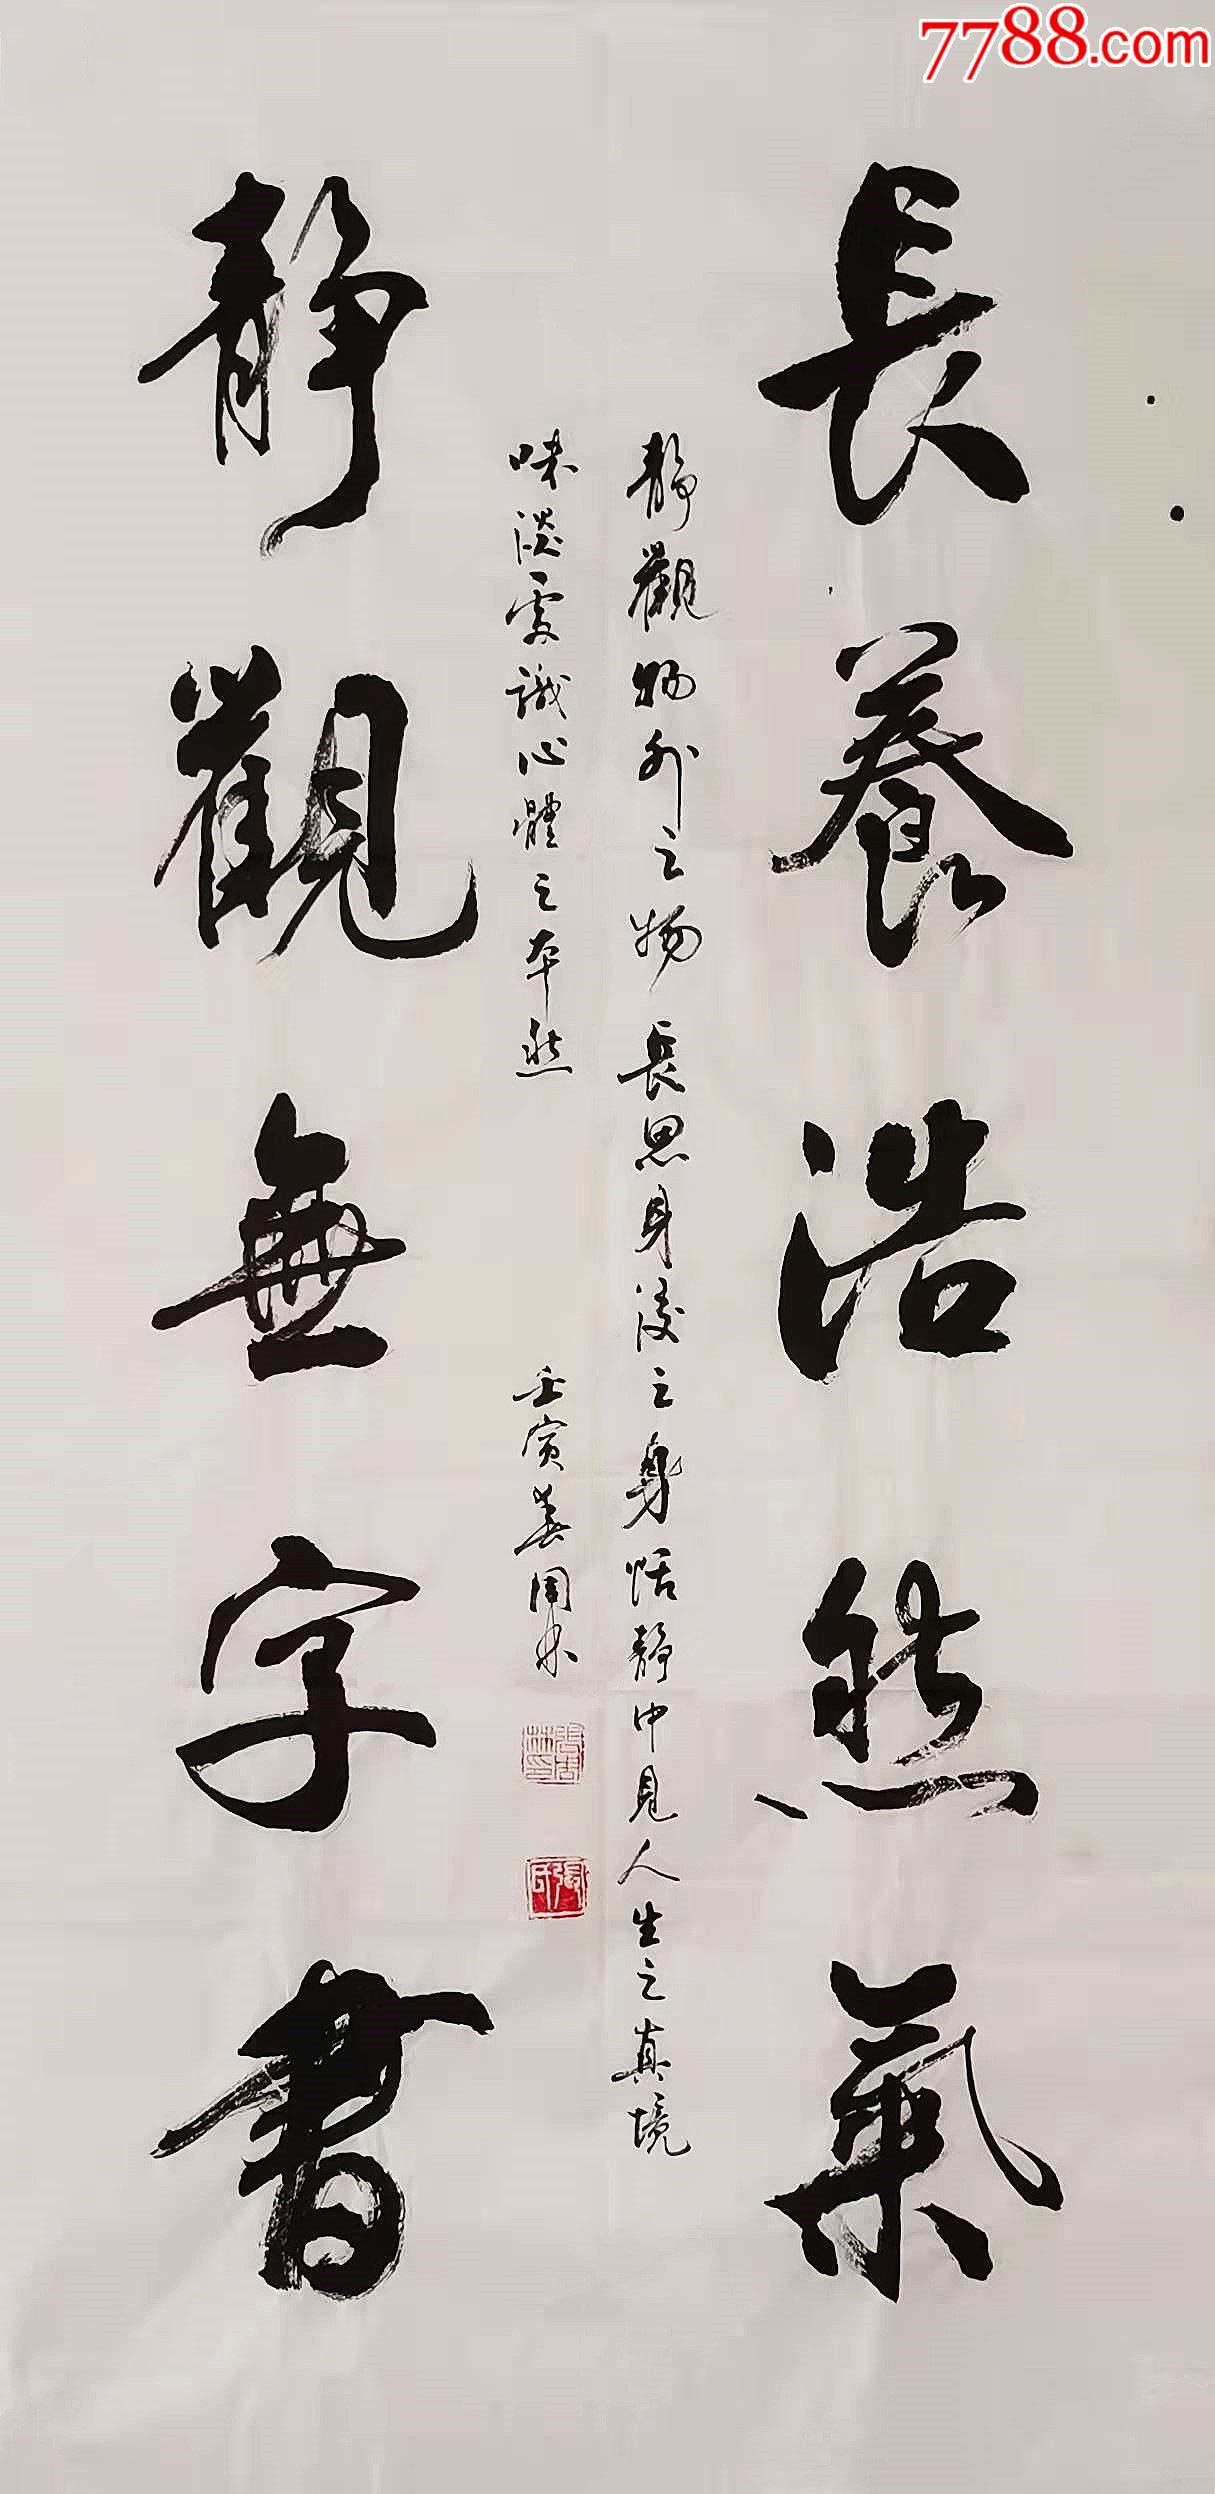 7788.com
長養浩然氣
靜觀物外之物 長思身後之身 恬靜中見人生之真境
味淡處識心體之本然
壬寅春周林
張周林印
張氏
靜觀無字書